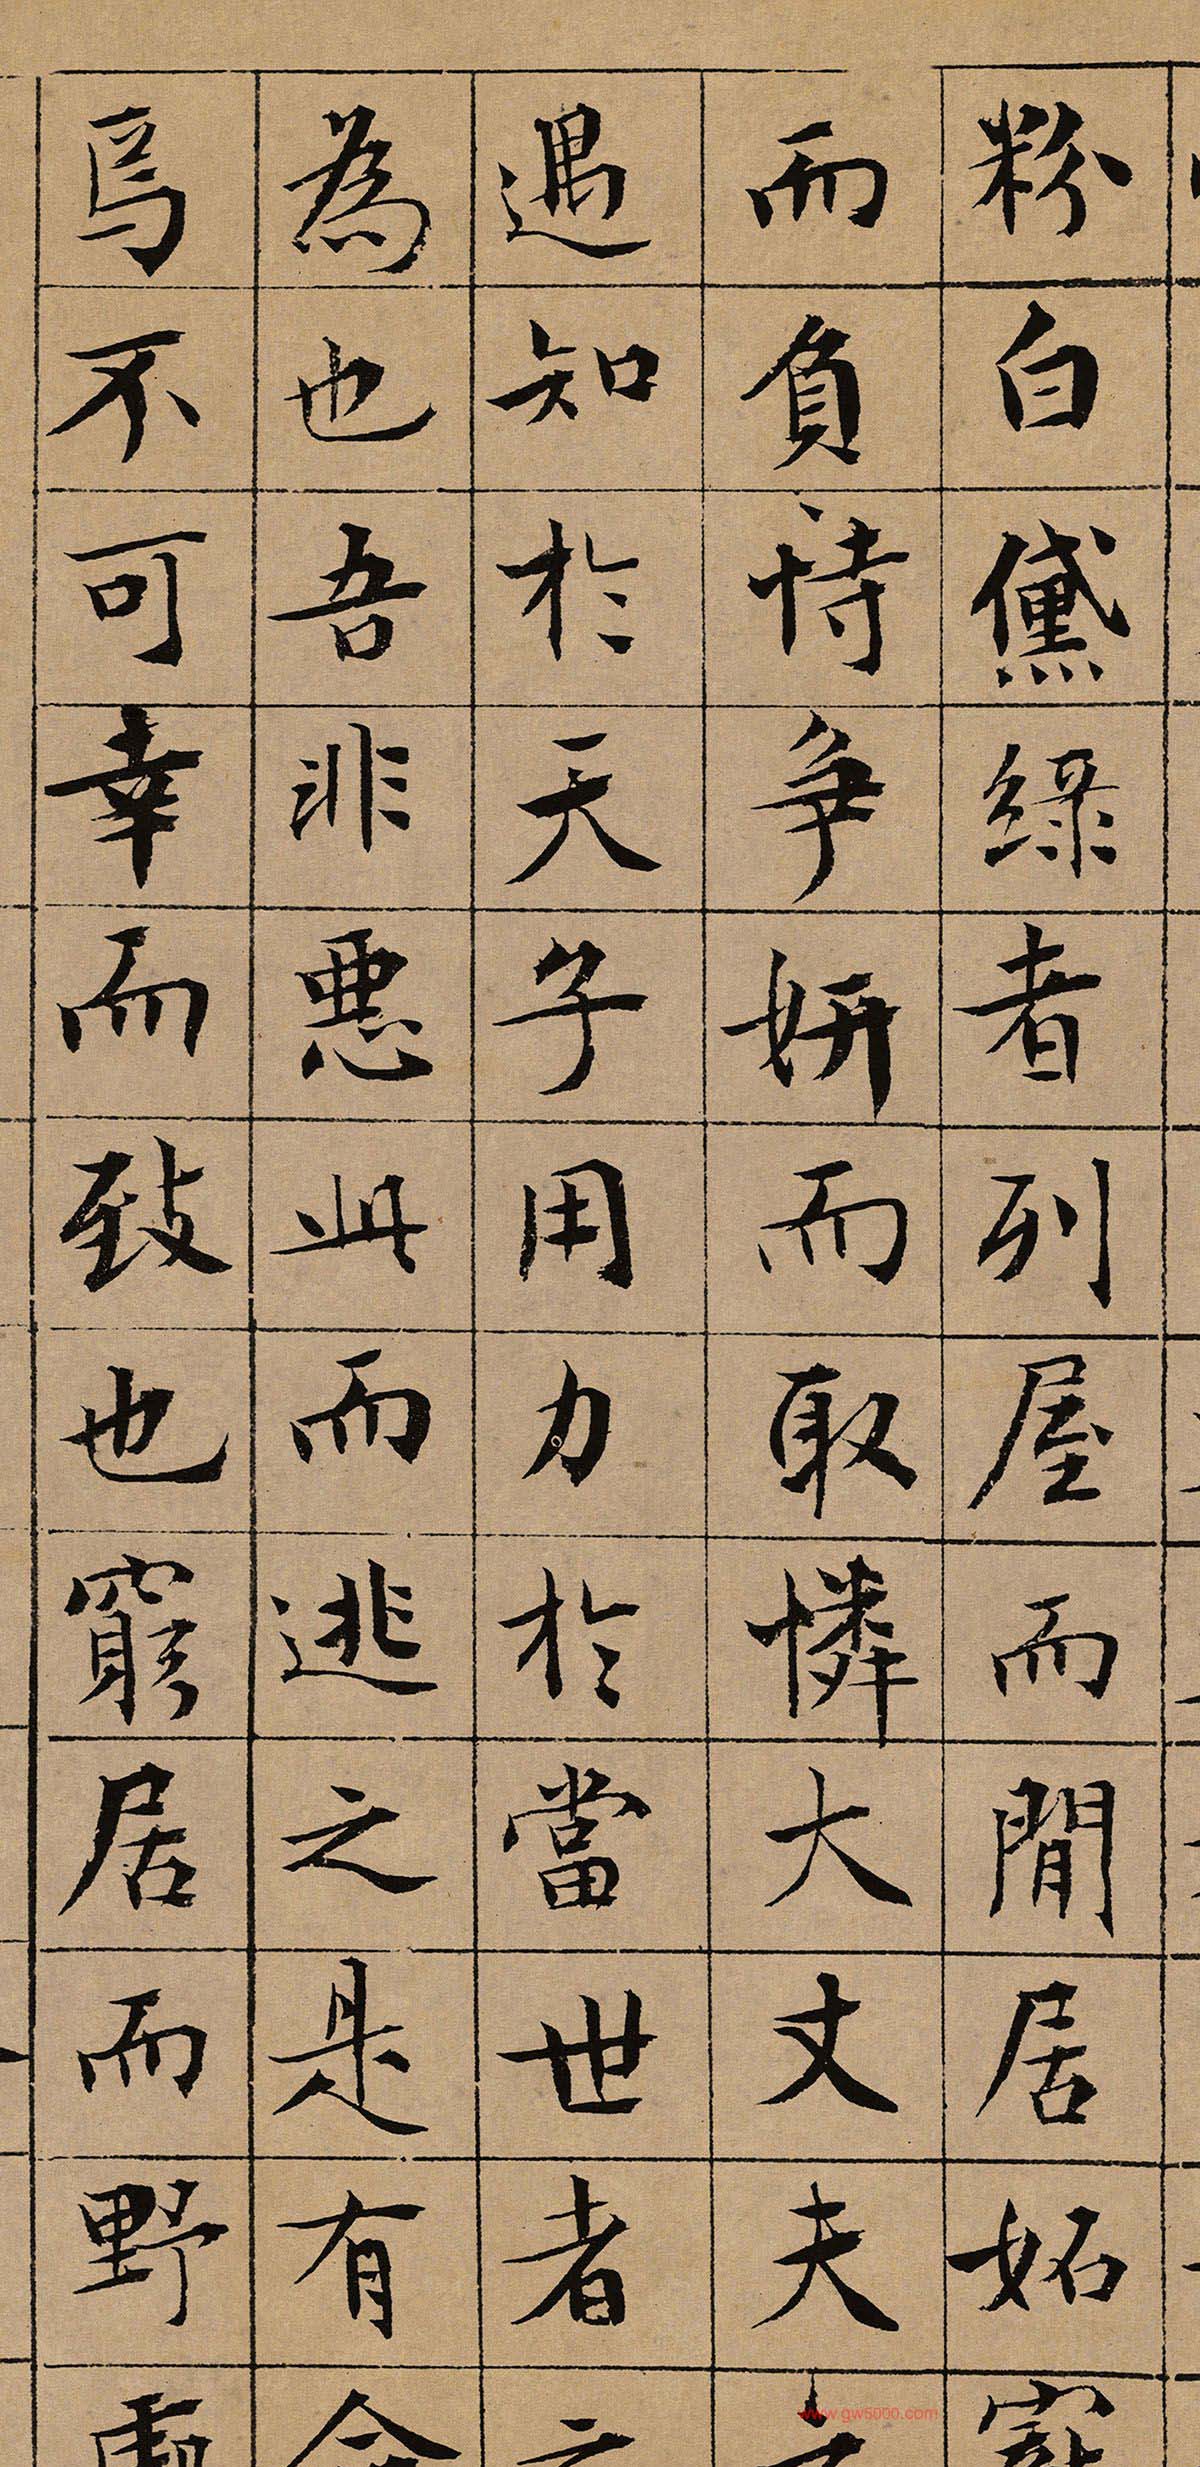 粉白黛綠者列屋而閒居妬寵
而負恃爭妍而取憐大丈夫之
遇知於天子用力於當世者之
為也吾非惡此而逃之是有命
焉不可幸而致也窮居而野處
www.gw5000.com